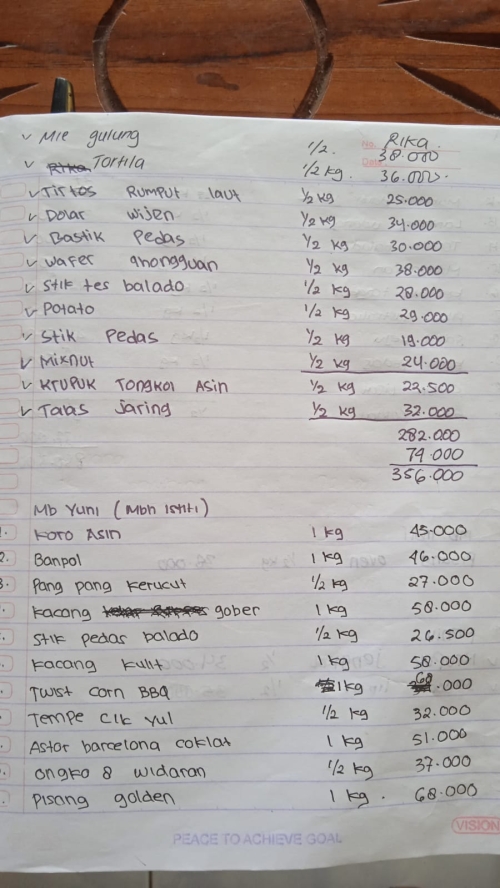 No. RIKA
✓ Mie gulung 1/2. 38.000
✓ Tortila 1/2 kg. Date 36.000.
✓ Tirtos Rumput laut 1/2 kg 25.000
✓ Dolar wijen 1/2 kg 34.000
✓ Bastik Pedas 1/2 kg 30.000
✓ wafer ghongguan 1/2 kg 38.000
✓ Stik tes balado 1/2 kg 28.000
✓ Potato 1/2 kg 29.000
✓ Stik Pedas 1/2 kg 19.000
✓ Mixnut 1/2 kg 24.000
✓ Krupuk Tongkol Asin 1/2 kg 22.500
✓ Talas jaring 1/2 kg 32.000
282.000
74.000
356.000
Mb Yuni (Mbh Istiti)
1. Koro Asin 1 kg 45.000
2. Banpol 1 kg 46.000
3. Pang pang kerucut 1/2 kg 27.000
Kacang gober 1 kg 58.000
Stik pedas balado 1/2 kg 26.500
Kacang kulit 1 kg 58.000
Twist corn BBQ 1 kg 68.000
Tempe cik yul 1/2 kg 32.000
Astor barcelona coklat 1 kg 51.000
ongko 8 widaran 1/2 kg 37.000
Pisang golden 1 kg. 68.000
VISION
PEACE TO ACHIEVE GOAL